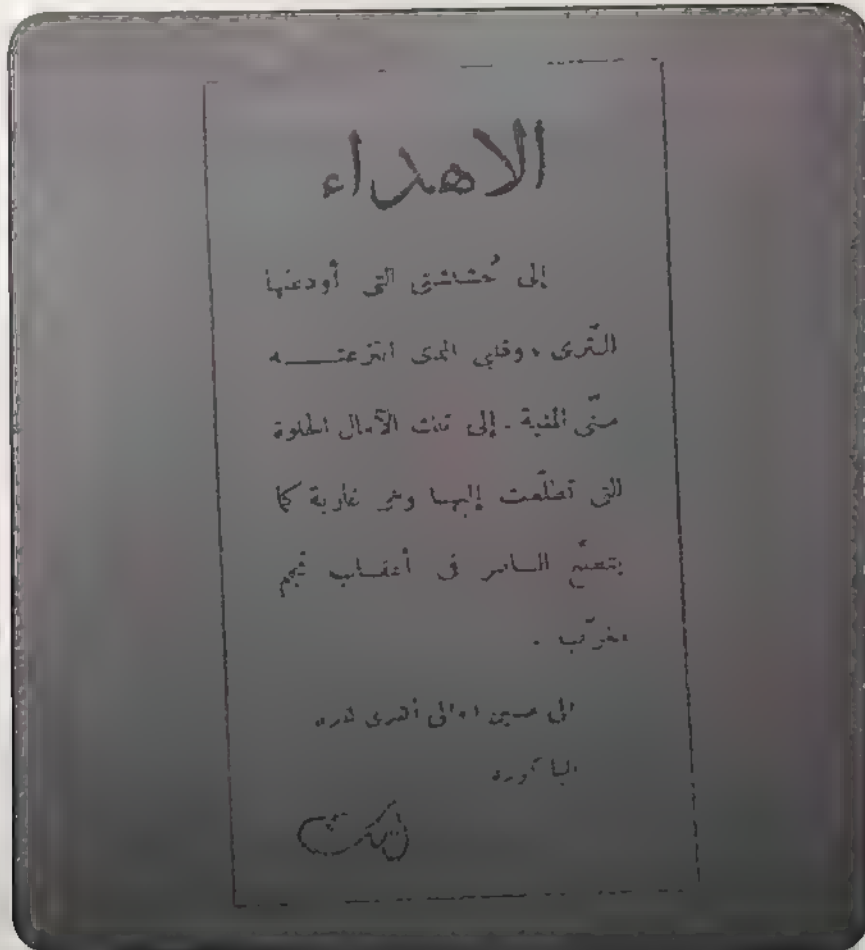 الاهداء
إلى حُشاشتي التي أودعتها
الثّرى ، وقلبي الذى انتزعتـــه
منّى المنية . إلى تلك الآمال الحلوة
التى تطلّعت إليها وهى غاربة كما
يتطلّع السامر فى أعقاب نجم
مغرّب .
الى حسين أهدى هذه
الباكورة